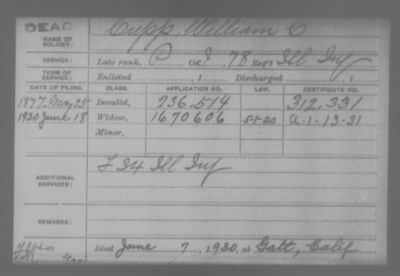 DEAD
NAME OF SOLDIER: Cupp, William C
SERVICE: Late rank, P Co. I, 78 Reg't Ill Inf
TERM OF SERVICE: Enlisted , 1 Discharged , 1
DATE OF FILING. CLASS. APPLICATION NO. LAW. CERTIFICATE NO.
1877 May 25 Invalid, 236,514 312,331
1930 June 18 Widow, 1670606 5-1-20 A-1-13-31
Minor,
ADDITIONAL SERVICES: F 34 Ill Inf
REMARKS:
Died June 7, 1930, at Galt, Calif